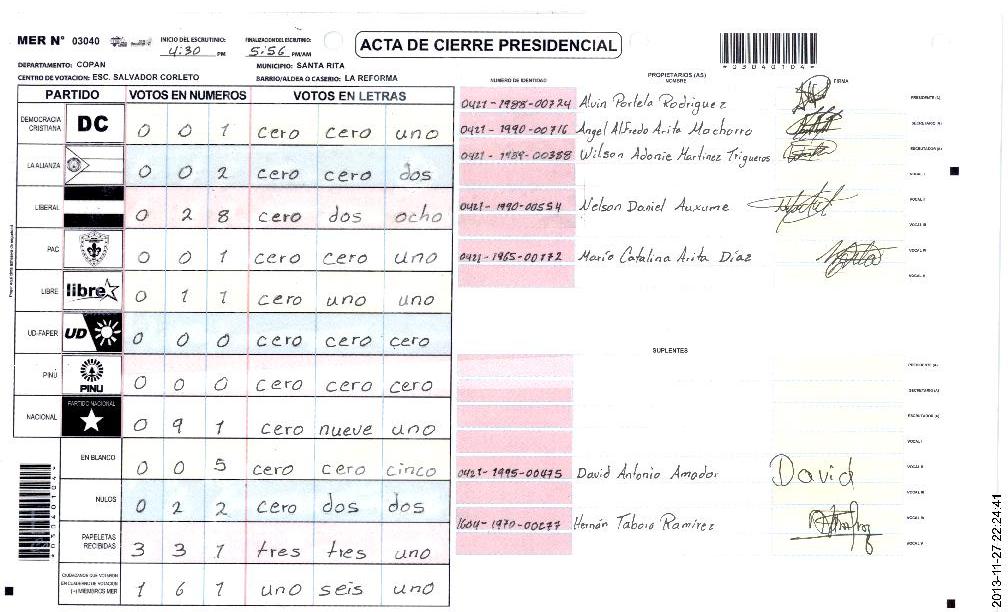 MER N° 03040
INICIO DEL ESCRUTINIO: 4:30 PM
FINALIZACION DEL ESCRUTINIO: 5:56 PM/AM
ACTA DE CIERRE PRESIDENCIAL
*03040104*
DEPARTAMENTO: COPAN
MUNICIPIO: SANTA RITA
CENTRO DE VOTACION: ESC. SALVADOR CORLETO
BARRIO/ALDEA O CASERIO: LA REFORMA
PARTIDO VOTOS EN NUMEROS VOTOS EN LETRAS
DEMOCRACIA CRISTIANA DC 0 0 1 cero cero uno
LA ALIANZA 0 0 2 cero cero dos
LIBERAL 0 2 8 cero dos ocho
PAC 0 0 1 cero cero uno
LIBRE libre 0 1 1 cero uno uno
UD-FAPER UD 0 0 0 cero cero cero
PINÚ PINU 0 0 0 cero cero cero
NACIONAL PARTIDO NACIONAL 0 9 1 cero nueve uno
EN BLANCO 0 0 5 cero cero cinco
NULOS 0 2 2 cero dos dos
PAPELETAS RECIBIDAS 3 3 1 tres tres uno
CIUDADANOS QUE VOTARON EN CUADERNO DE VOTACION (+) MIEMBROS MER 1 6 1 uno seis uno
*03040104*
NUMERO DE IDENTIDAD
PROPIETARIOS (AS)
NOMBRE
FIRMA
0421-1988-00724 Alvin Portela Rodriguez PRESIDENTE (A)
0421-1990-00716 Angel Alfredo Arita Machorro SECRETARIO (A)
0421-1989-00388 Wilson Adonie Martinez Trigueros ESCRUTADOR (A)
VOCAL I
0421-1990-00554 Nelson Daniel Auxume VOCAL II
VOCAL III
0421-1965-00172 Mario Catalina Arita Díaz VOCAL IV
VOCAL V
SUPLENTES
PRESIDENTE (A)
SECRETARIO (A)
ESCRUTADOR (A)
VOCAL I
0421-1995-00475 David Antonio Amador David VOCAL II
VOCAL III
1604-1970-00277 Hernán Taboro Ramirez VOCAL IV
VOCAL V
2013-11-27 22:24:41